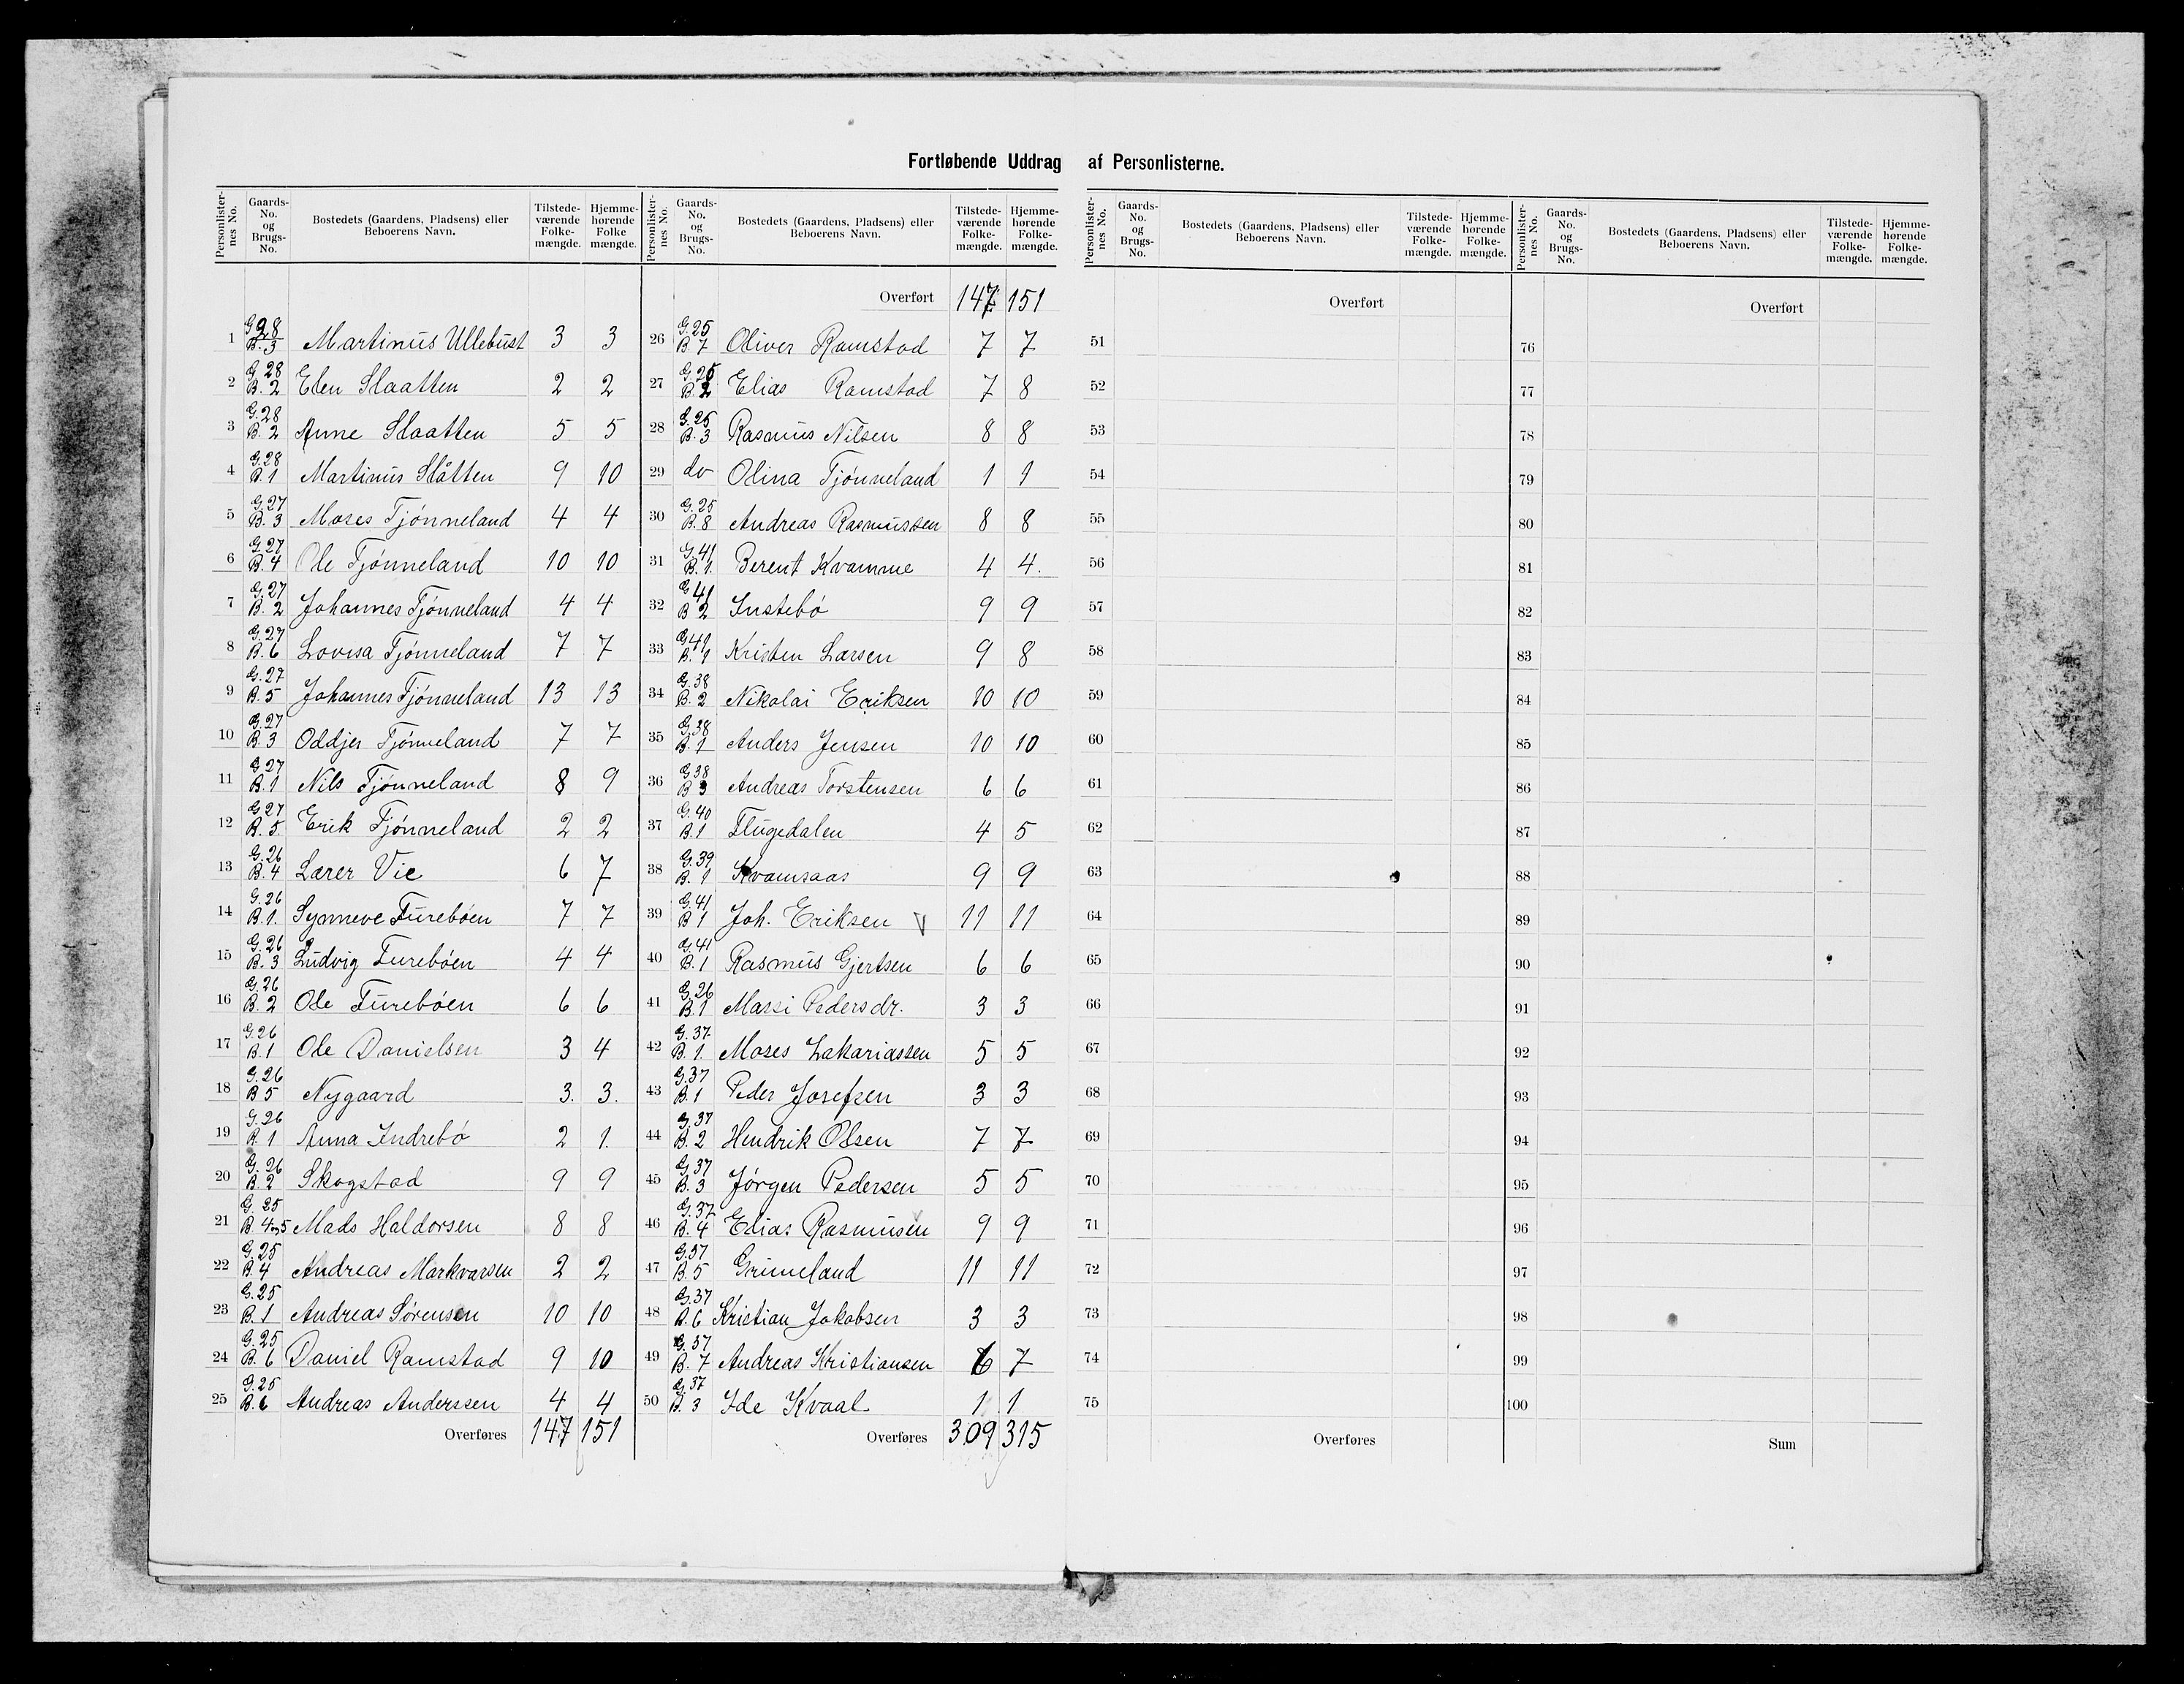 Fortløbende Uddrag af Personlisterne.
Personlister-nes No. Gaards-No. og Brugs-No. Bostedets (Gaardens, Pladsens) eller Beboerens Navn. Tilstede-værende Folke-mængde. Hjemme-hørende Folke mængde.
1 G 28 B. 3 Martinus Ullebust 3 3
2 G 28 B. 2 Elen Slaatten 2 2
3 G. 28 B. 2 Anne Slaatten 5 5
4 G. 28 B. 1 Martinus Slåtten 9 10
5 G. 27 B. 3 Moses Tjønneland 4 4
6 G. 27 B. 4 Ole Tjønneland 10 10
7 G. 27 B. 2 Johannes Tjønneland 4 4
8 G. 27 B. 6 Lovisa Tjønneland 7 7
9 G. 27 B. 5 Johannes Tjønneland 13 13
10 G. 27 B. 3 Oddjer Tjønneland 7 7
11 G 27 B. 1 Nils Tjønneland 8 9
12 G 27 B. 5 Erik Tjønneland 2 2
13 G. 26 B. 4 Lærer Vie 6 7
14 G. 26 B. 1. Synneve Furebøen 7 7
15 G. 26 B. 3 Ludvig Furebøen 4 4
16 G. 26 B. 2 Ole Furebøen 6 6
17 G. 26 B. 1 Ole Danielsen 3 4
18 G. 26 B 5 Nygaard 3. 3.
19 G. 26 B. 1 Anna Indrebø 2 1.
20 G. 26 B. 2 Skogstad 9 9
21 G. 25 B. 4 5 Mads Haldorsen 8 8
22 G. 25 B. 4 Andreas Markvarsen 2 2
23 G. 25 B. 1 Andreas Sørensen 10 10
24 G. 25 B. 6 Daniel Ramstad 9 10
25 G. 25 B. 6 Andreas Anderssen 4 4
Overføres 147 151
Personlister-nes No. Gaards-No. og Brugs-No. Bostedets (Gaardens, Pladsens) eller Beboerens Navn. Tilstede-værende Folke-mængde. Hjemme-hørende Folke-mængde.
Overført 147 151
26 G. 25 B 7 Oliver Ramstad 7 7
27 G. 25 B. 2 Elias Ramstad 7 8
28 G. 25 B. 3 Rasmus Nilsen 8 8
29 do Olina Tjønneland 1 1
30 G. 25 B. 8 Andreas Rasmussen 8 8
31 G. 41 B. 1. Berent Kvamme 4 4.
32 G 41 B 2 Instebø 9 9
33 G 41 B. 1 Kristen Larsen 9 8
34 G. 38 B. 2 Nikolai Eriksen 10 10
35 G. 38 B. 1 Anders Jensen 10 10
36 G 38 B 3 Andreas Torstensen 6 6
37 G. 40 B. 1 Flugedalen 4 5
38 G. 39 B. 1 Kvamsaas 9 9
39 G. 41 B 1 Joh. Eriksen 11 11
40 G. 41 B. 1 Rasmus Gjertsen 6 6
41 G. 26 B. 1 Massi Pedersdr. 3 3
42 G. 37 B. 1. Moses Zakariassen 5 5
43 G. 37 B. 1 Peder Josefsen 3 3
44 G. 37 B. 2 Hendrik Olsen 7 7
45 G. 37 B. 3 Jørgen Pedersen 5 5
46 G. 37 B. 4 Edias Rasmusen 9 9
47 G. 37 B. 5 Grimeland 11 11
48 G. 37 B. 6 Kristian Jakobsen 3 3
49 G. 37 B. 7 Andreas Kristiansen 6 7
50 G. 37 B. 3 Ide Kvaal 1 1
Overføres 309 315
Personlister-nes No. Gaards-No. og Brugs-No. Bostedets (Gaardens, Pladsens) eller Beboerens Navn. Tilstede-værende Folke-mængde. Hjemme-hørende Folke-mængde.
Overført
51
52
53
54
55
56
57
58
59
60
61
62
63
64
65
66
67
68
69
70
71
72
73
74
75
Overføres
Personlister-nes No. Gaards-No. og Brugs-No. Bostedets (Gaardens, Pladsens) eller Beboerens Navn. Tilstede-værende Folke-mængde. Hjemme-hørende Folke-mængde.
Overført
76
77
78
79
80
81
82
83
84
85
86
87
88
89
90
91
92
93
94
95
96
97
98
99
100
Sum